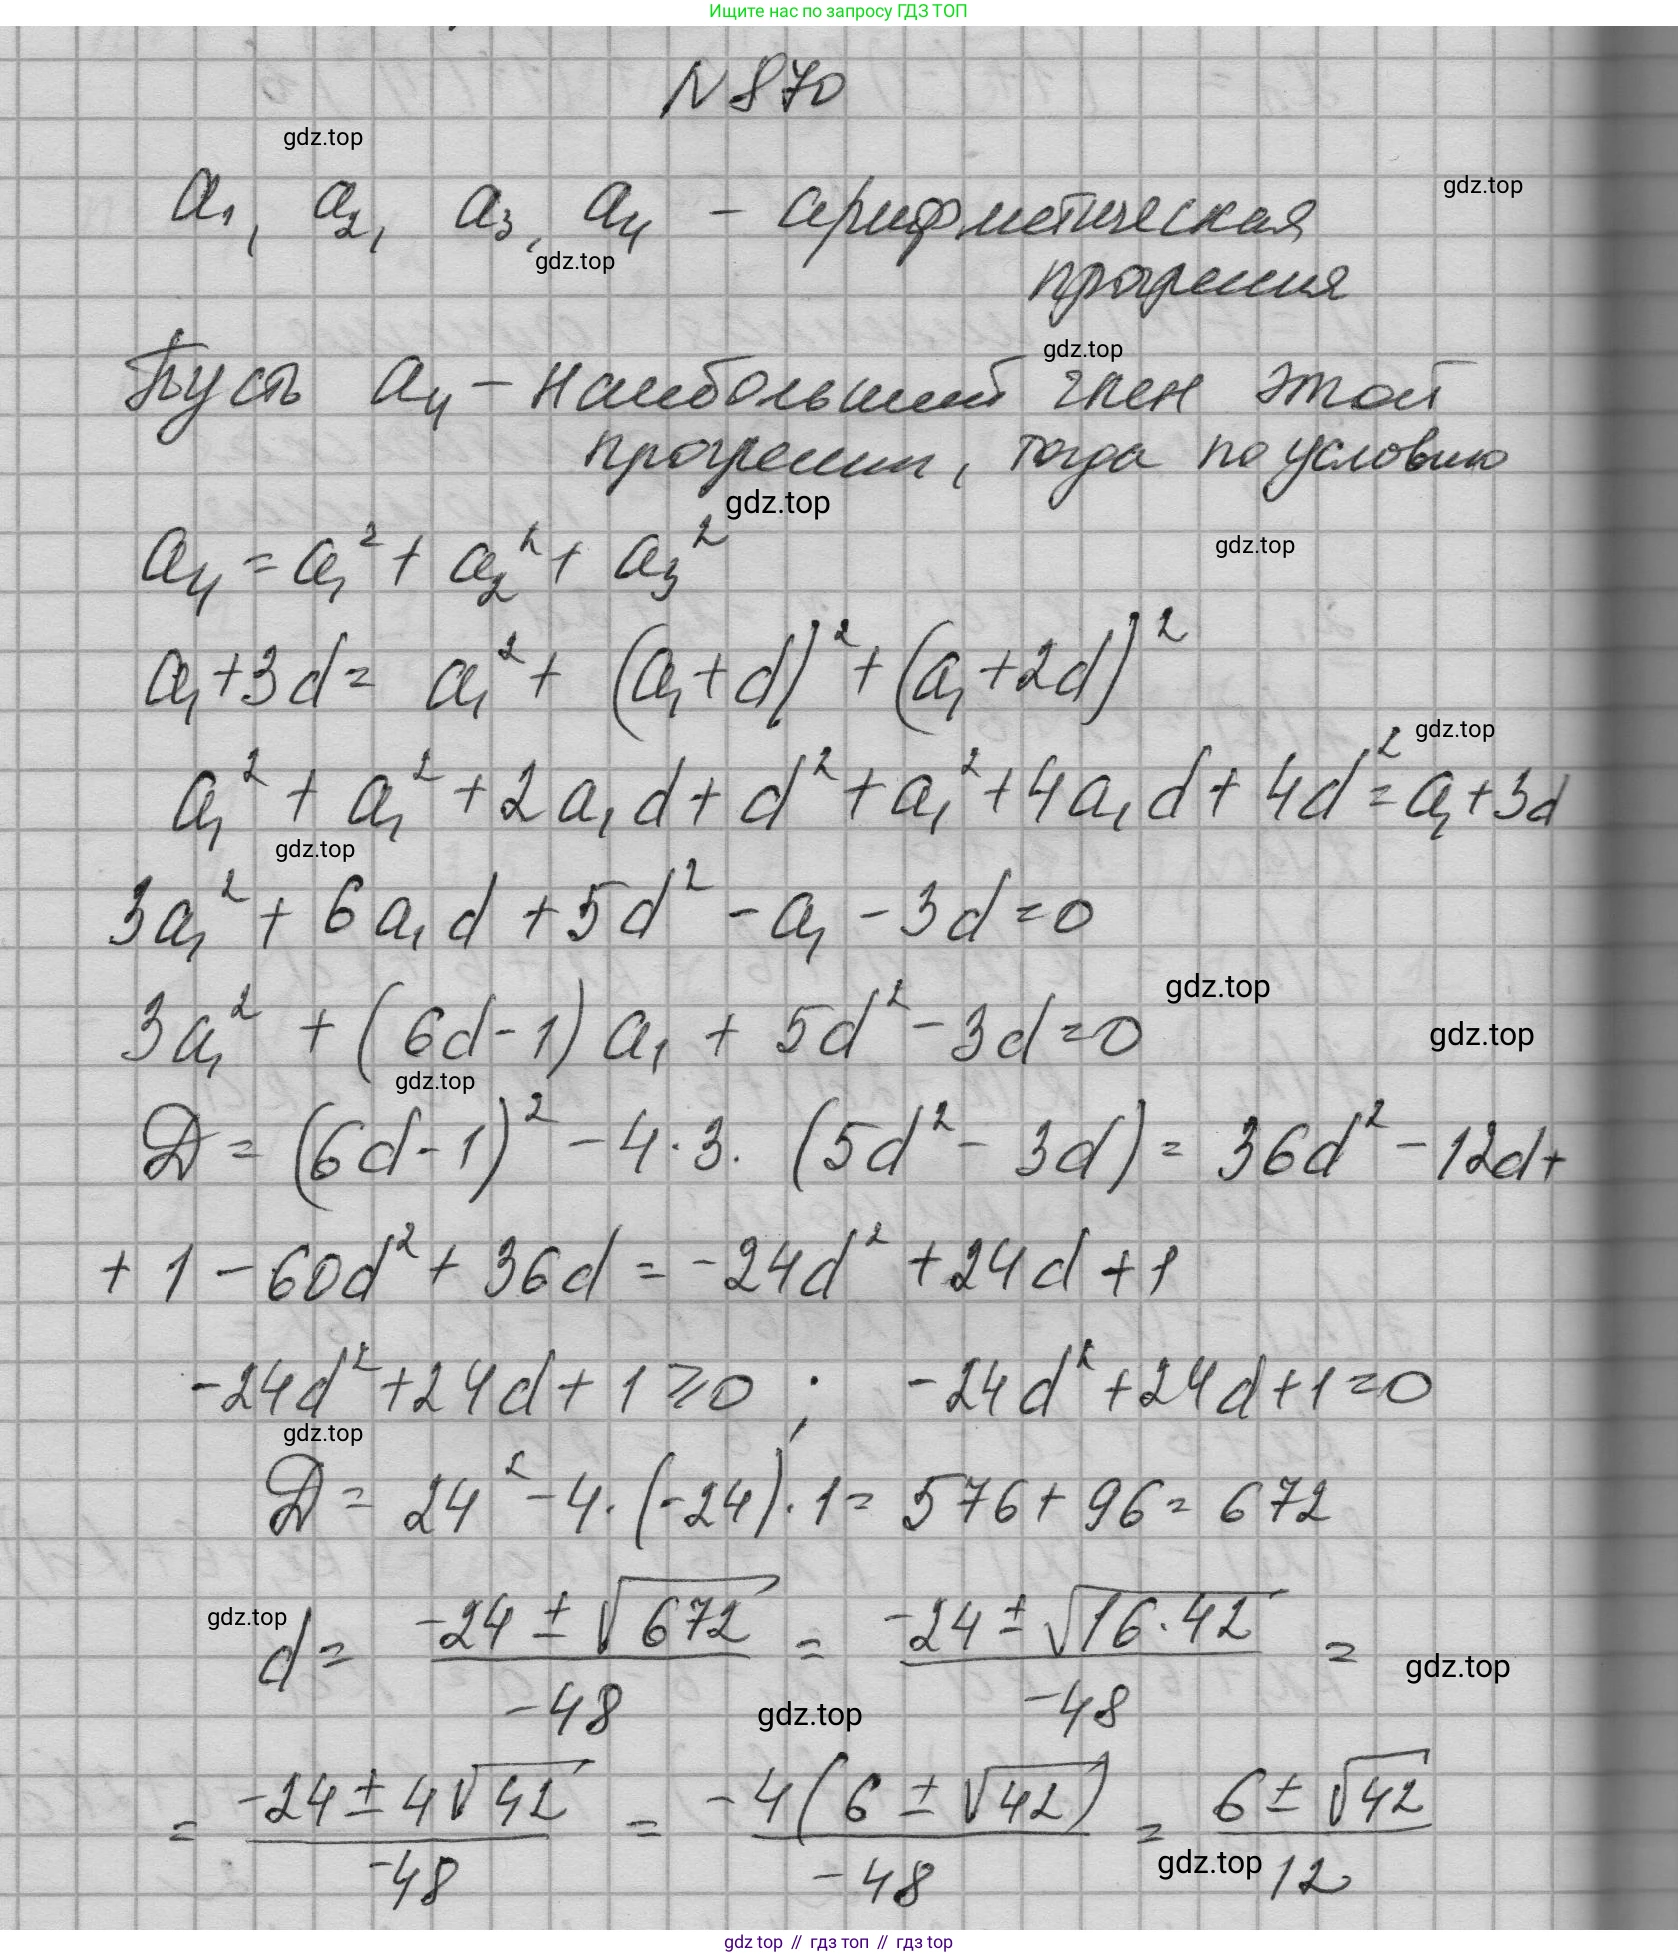 Ищите нас по запросу ГДЗ ТОП
N 870
gdz.top
a₁, a₂, a₃, a₄ – арифметическая
gdz.top
gdz.top
прогрессия
gdz.top
Пусть a₄ – наибольший член этой
прогрессии, тогда по условию
gdz.top
a₄ = a₁² + a₂² + a₃²
gdz.top
a₁ + 3d = a₁² + (a₁ + d)² + (a₁ + 2d)²
gdz.top
a₁² + a₁² + 2a₁d + d² + a₁² + 4a₁d + 4d² = a₁ + 3d
gdz.top
3a₁² + 6a₁d + 5d² – a₁ – 3d = 0
gdz.top
3a₁² + (6d – 1)a₁ + 5d² – 3d = 0
gdz.top
gdz.top
D = (6d – 1)² – 4 · 3 · (5d² – 3d) = 36d² – 12d +
+ 1 – 60d² + 36d = –24d² + 24d + 1
–24d² + 24d + 1 ≥ 0 ; –24d² + 24d + 1 = 0
gdz.top
D = 24² – 4 · (–24) · 1 = 576 + 96 = 672
gdz.top
d = (–24 ± √672)/(–48) = (–24 ± √(16 · 42))/(–48) =
gdz.top
gdz.top
= (–24 ± 4√42)/(–48) = (–4(6 ± √42))/(–48) = (6 ± √42)/12
gdz.top
gdz top // гдз топ // гдз top